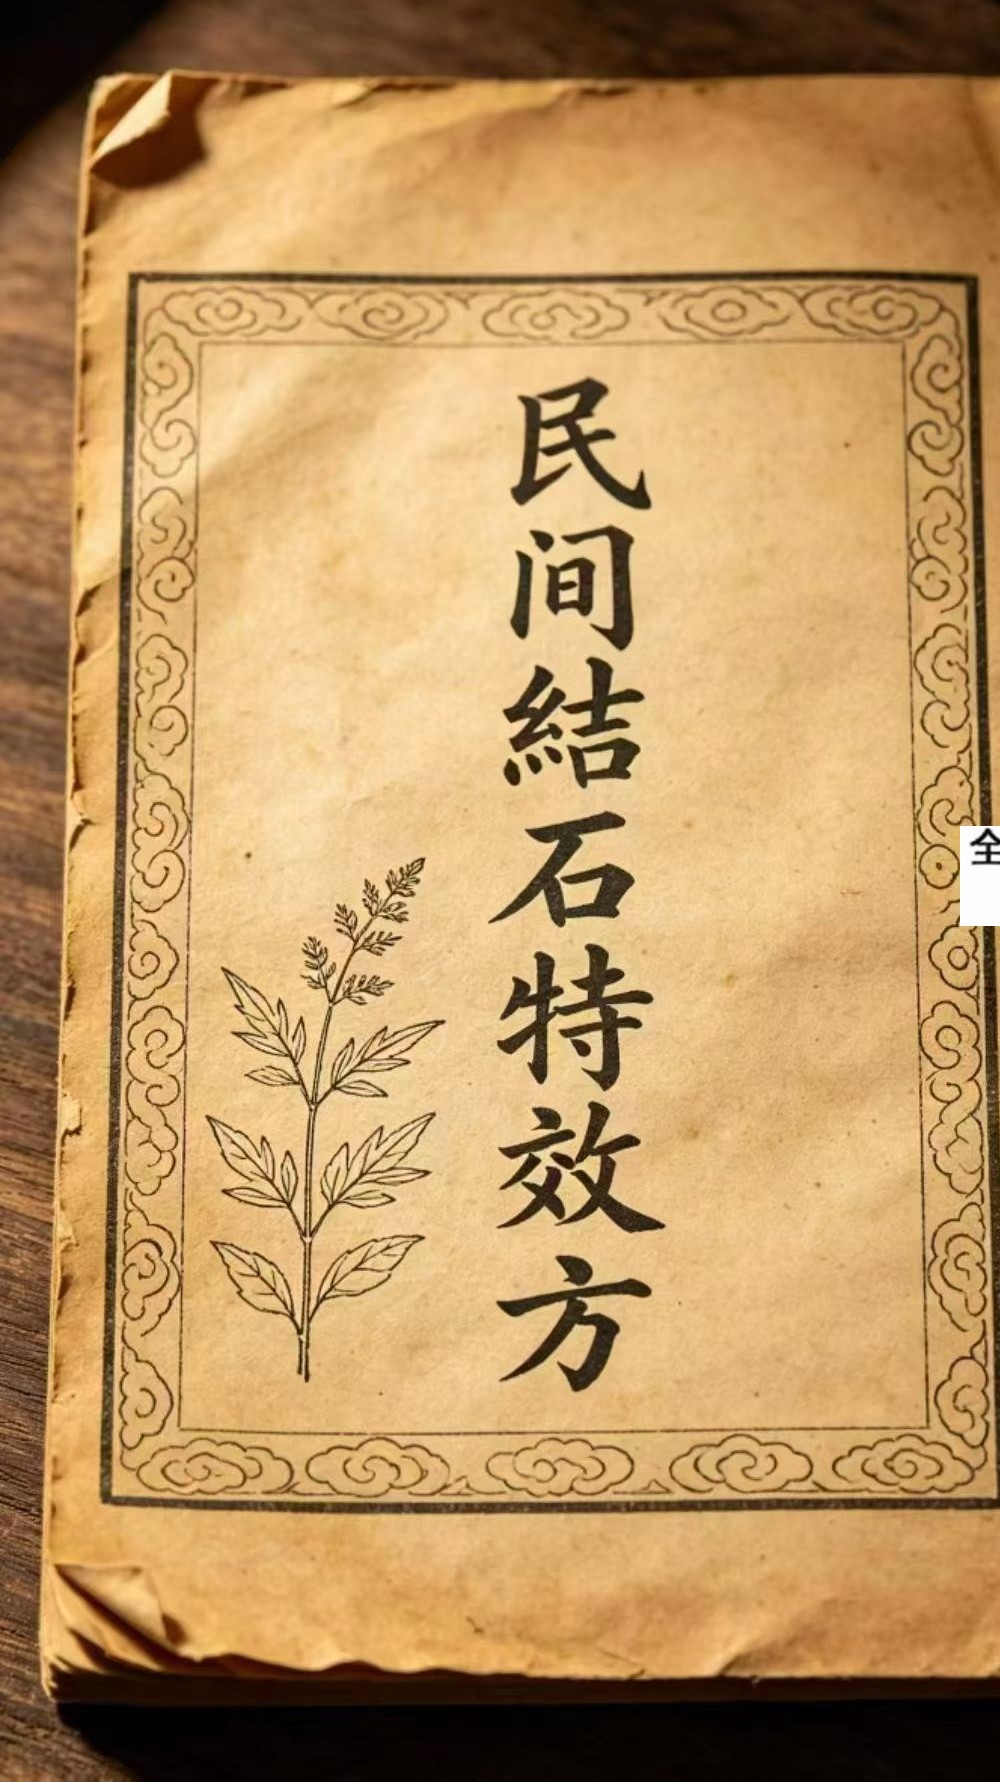 民间結石特效方
全